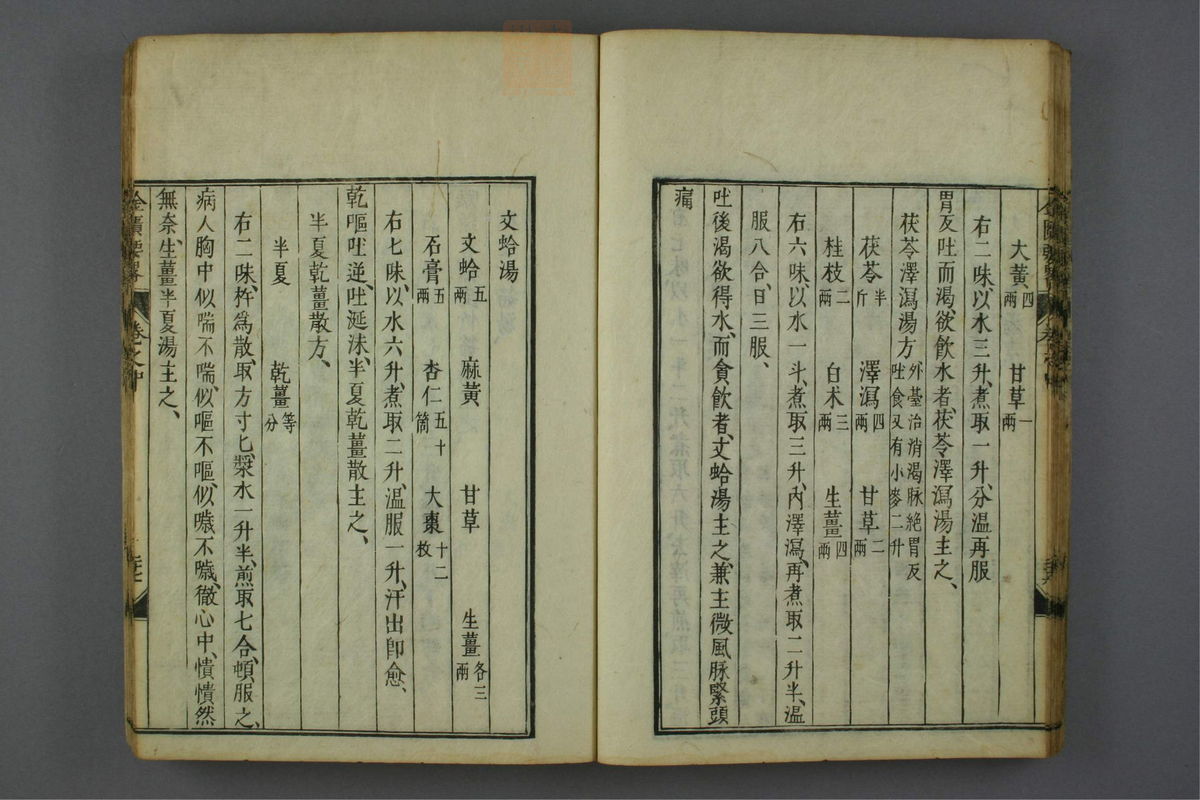 大黃四兩 甘草一兩
右二味、以水三升、煮取一升、分溫再服
胃反吐而渴、欲飲水者、茯苓澤瀉湯主之、
茯苓澤瀉湯方 外臺治消渴脉絕胃反吐食又有小麥二升
茯苓半斤 澤瀉四兩 甘草二兩
桂枝二兩 白朮三兩 生薑四兩
右六味、以水一斗、煮取三升、內澤瀉、再煮取二升半、溫
服八合、日三服、
吐後渴欲得水、而貪飲者、文蛤湯主之、兼主微風脉緊頭
痛
文蛤湯
文蛤五兩 麻黃 甘草 生薑各三兩
石膏五兩 杏仁五十箇 大棗十二枚
右七味、以水六升、煮取二升、溫服一升、汗出卽愈、
乾嘔吐逆、吐涎沫、半夏乾薑散主之、
半夏乾薑散方、
半夏 乾薑等分
右二味、杵爲散、取方寸匕、漿水一升半、煎取七合、頓服之、
病人胸中似喘不喘、似嘔不嘔、似噦不噦、徹心中、憒憒然
無奈、生薑半夏湯主之、
金匱要畧 卷之中